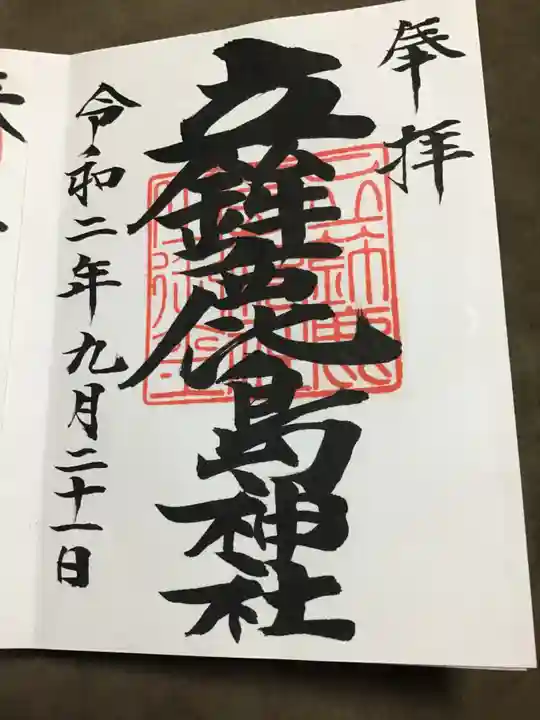 奉拝
立鉾鹿島神社
令和二年九月二十一日